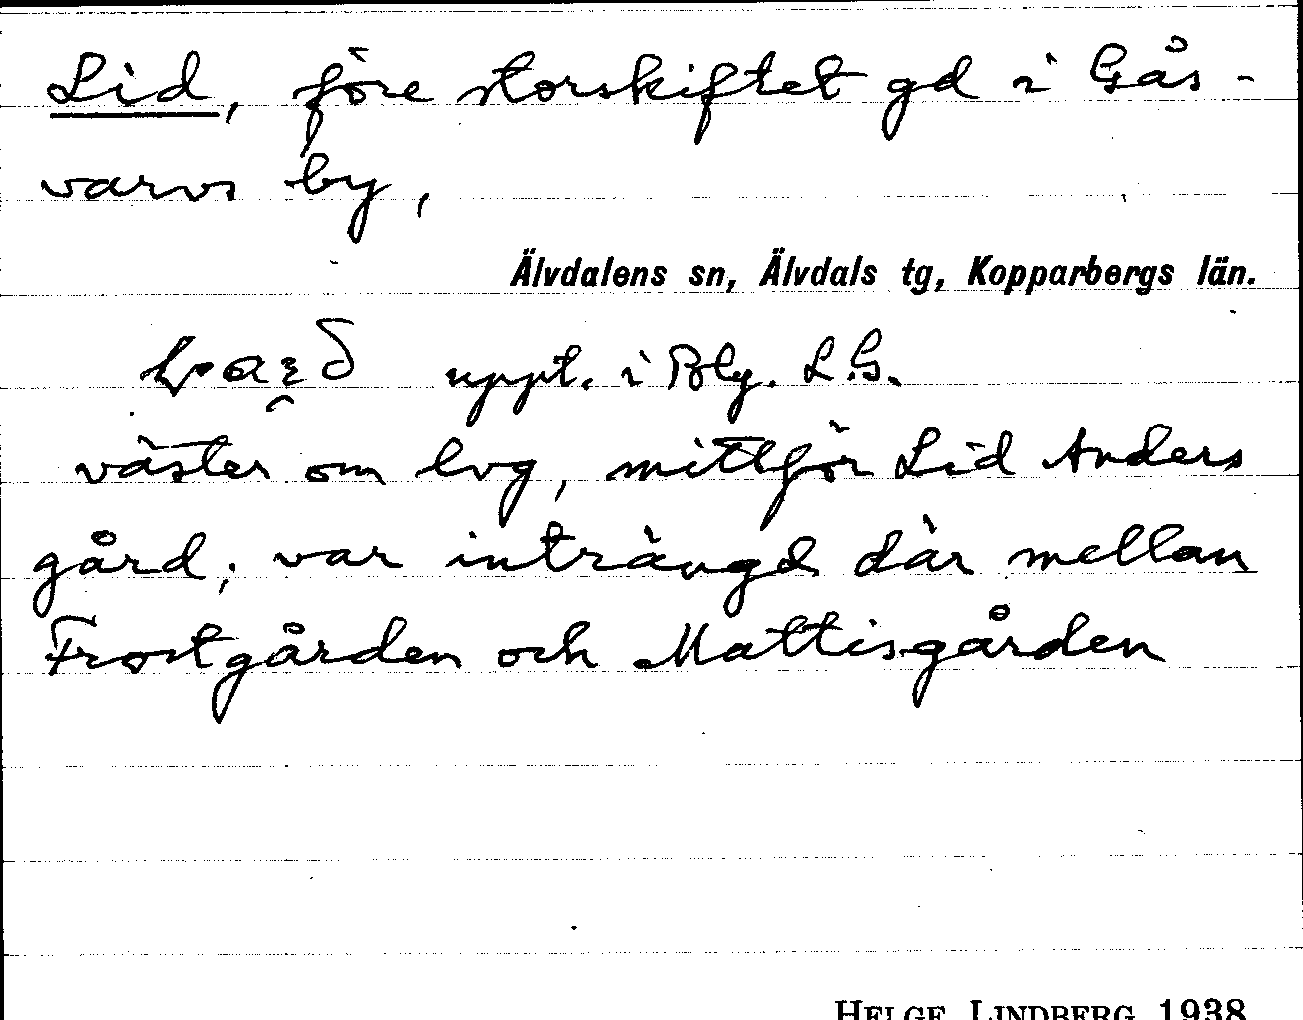 Lid, före storskiftet gd i Gås-
varvs by,
Älvdalens sn, Älvdals tg, Kopparbergs län.
uppt. i Bly. L.G.
väster om lvg, mittför Lid Anders
gård; var inträngd där mellan
Frostgården och Mattisgården
HELGE LINDBERG 1938